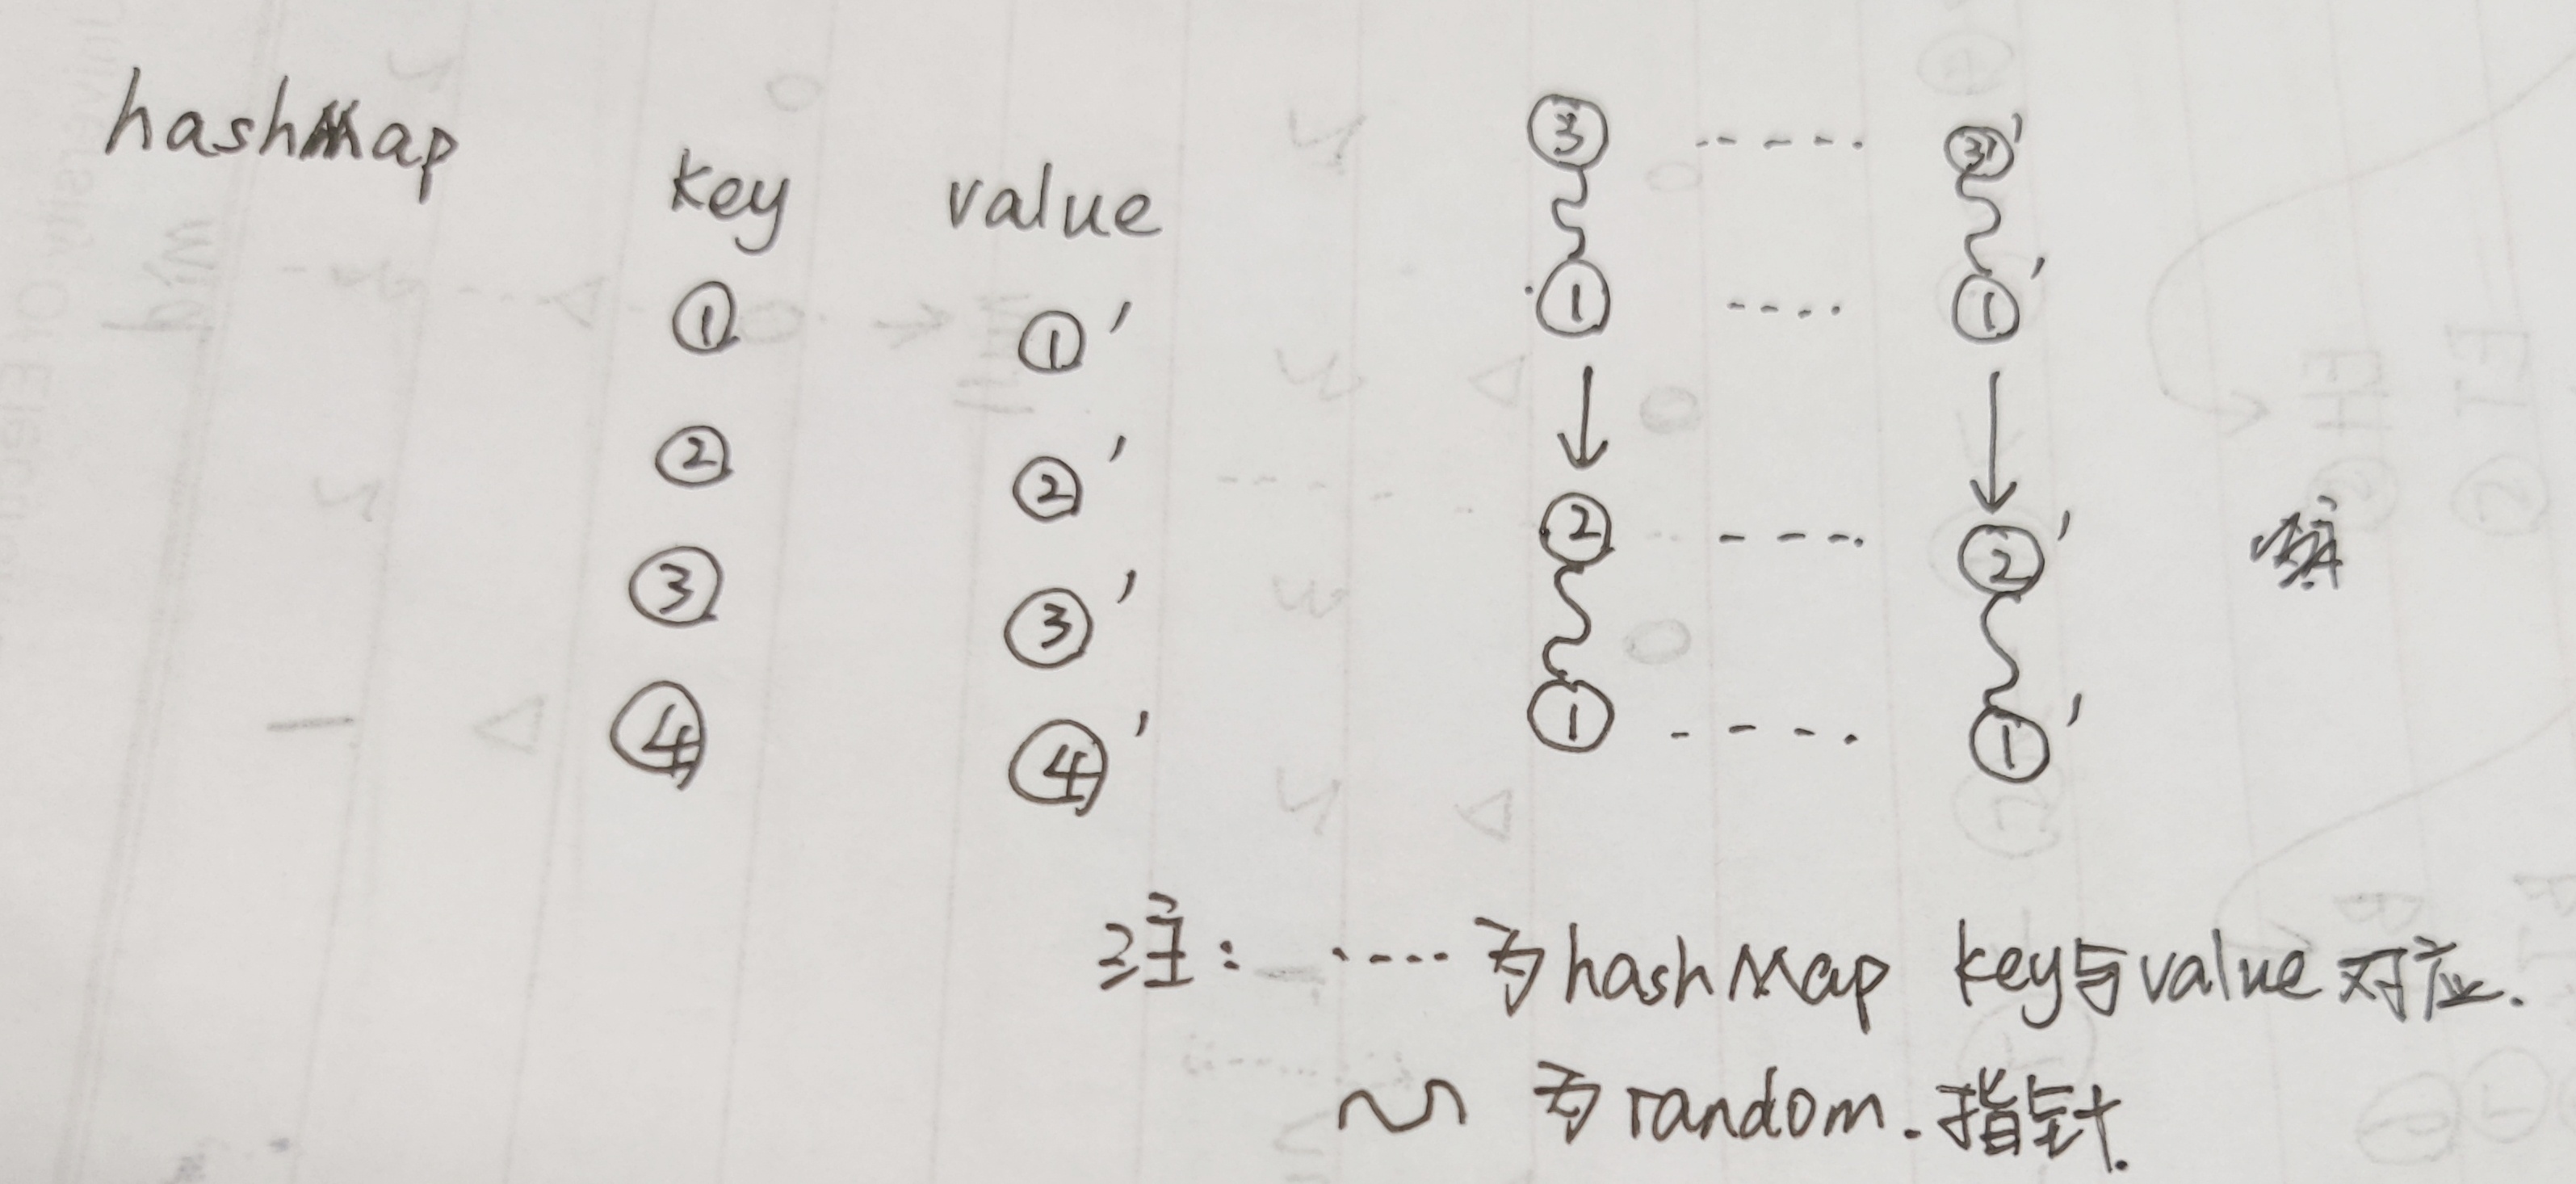 hashMap
key value
① ①'
② ②'
③ ③'
④ ④'
③ ----- ③'
① ---- ①'
↓ ↓
② ---- ②'
① ---- ①'
注: ---- 为hashMap key与value对应.
~ 为random.指针.